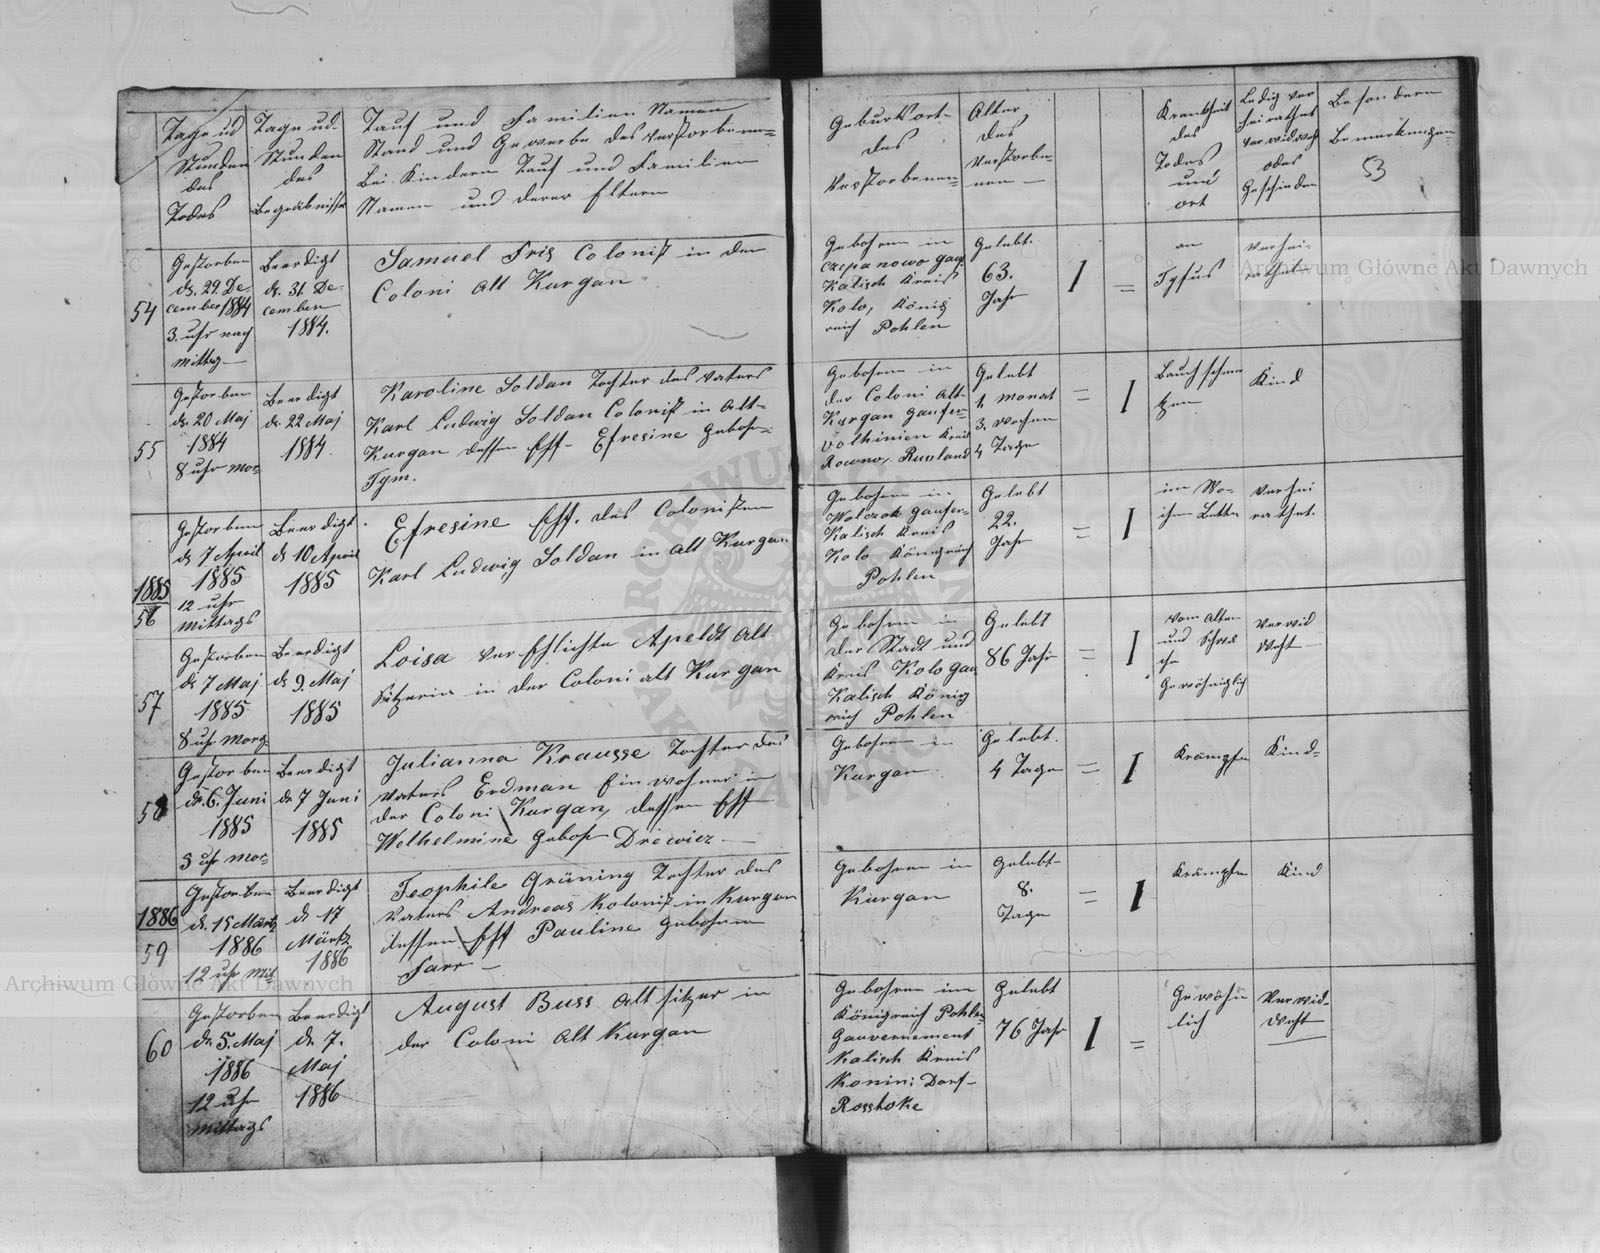 Tage ud
Stunden
des
Todes
Tage ud-
Stunden
des
Begräbnisse
Tauf und Familien Namen
Stand und Gewerbe des Verstorbenen=
Bei Kindern Tauf und Familien
Namen und derer Eltern
Geburtsort-
des
Verstorbenen=
Alter
des
Verstorbe-
nen—
Krankheit
des
Todes
und
ort
Ledig ver
heirathet
verwidweht
odes
Geschieden
Besondern
Bemerkungen
53
54
Gestorben
d. 29. De-
cember 1884
3. uhr nach
mittag—
Beerdigt
d. 31. De-
cember
1884.
Samuel Fris Colonist in der
Coloni Alt Kurgan
Gebohren in
Czepanowo Gau
Kalisch Kreis
Kolo, König
reich Pohlen
Gelebt.
63.
Jahr
1
=
an
Tyfus
Verhei-
rathet—
55
Gestorben
d. 20 Maj
1884
8 uhr Mor=
Beerdigt
d. 22 Maj
1884.
Karoline Soldan Tochter des Vaters
Karl Ludwig Soldan Colonist in Alt-
Kurgan dessen Ehf- Efresine Gebohr=
Tym.
Gebohren in
der Coloni Alt-
Kurgan
Volhinien Kreis
Rowno, Russland
Gelebt
1, Monat
3. Wochen
4 Tage
=
1
Kind
1885
56
Gestorben
d. 7 April
1885
12 uhr
Mittags
Beerdigt.
d. 10 April
1885
Efresine Ehf. des Colonisten
Karl Ludwig Soldan in Alt Kurgan
Gebohren in
Kalisch Kreis
Kolo Königreich
Pohlen
Gelebt
22.
Jahr
=
1
im Wo-
chen Bette
Verhei
rathet.
57
Gestorben
d. 7 Maj
1885
8 uhr Morg=
Beerdigt
d. 9. Maj
1885
Loisa Verehlichte Apeldt Alt
Sitzerin in der Coloni alt Kurgan
Gebohren in
der Stadt und
Kreis Kolo Gau
Kalisch König
reich Pohlen
Gelebt
86 Jahr
=
1
vom Alter
und
Gewöhnlich
Verwid
weht—
58
Gestorben
d. 6. Juni
1885
5 uhr Mor=
Beerdigt
d. 7 Juni
1885
Julianna Krausse Tochter des
Vaters Erdman Einwohner in
der Coloni Kurgan, dessen Ehf
Welhelmine Geboh Drewicz—
Gebohren in
Kurgan.
Gelebt.
4 Tage
=
1
Krämpfe
Kind-
1886
59
Gestorben
d. 15 Märtz
1886
12 uhr Mit
Beerdigt
d. 17
Märtz
1886
Teophile Grüning Tochter des
Vaters Andreas Kolonist in Kurgan
dessen Ehf Pauline Gebohren
Farr—
Gebohren in
Kurgan
Gelebt-
8.
Tage
=
1
Krämpfe
Kind
60
Gestorben
d. 5. Maj
1886
12 uhr
Mittags
Beerdigt
d. 7.
Maj
1886
August Buss Alt sitzer in
der Coloni Alt Kurgan
Gebohren im
Königreich Pohlen
Gauvernement
Kalisch Kreis
Konin: Dorf-
Rosstoke
Gelebt
76 Jahr
1
=
Gewöhn
lich
Verwid-
weht
Archiwum Główne Akt Dawnych
Archiwum Główne Akt Dawnych